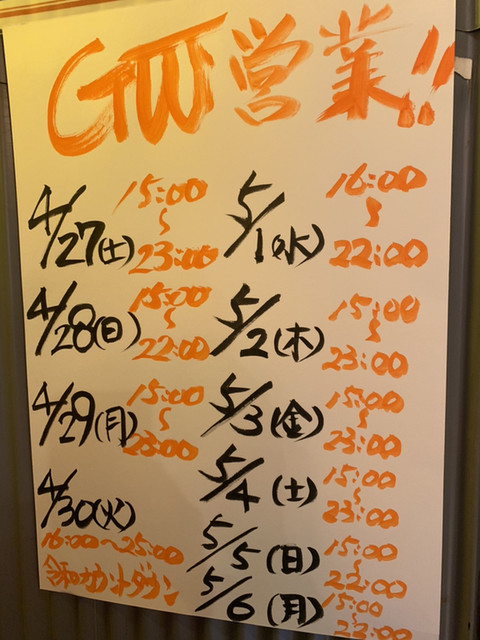 GW営業!!
4/27(土) 15:00～23:00
4/28(日) 15:00～22:00
4/29(月) 15:00～23:00
4/30(火)
16:00～25:00
令和カウントダウン
5/1(水) 16:00～22:00
5/2(木) 15:00～23:00
5/3(金) 15:00～23:00
5/4(土) 15:00～23:00
5/5(日) 15:00～22:00
5/6(月) 15:00～22:00